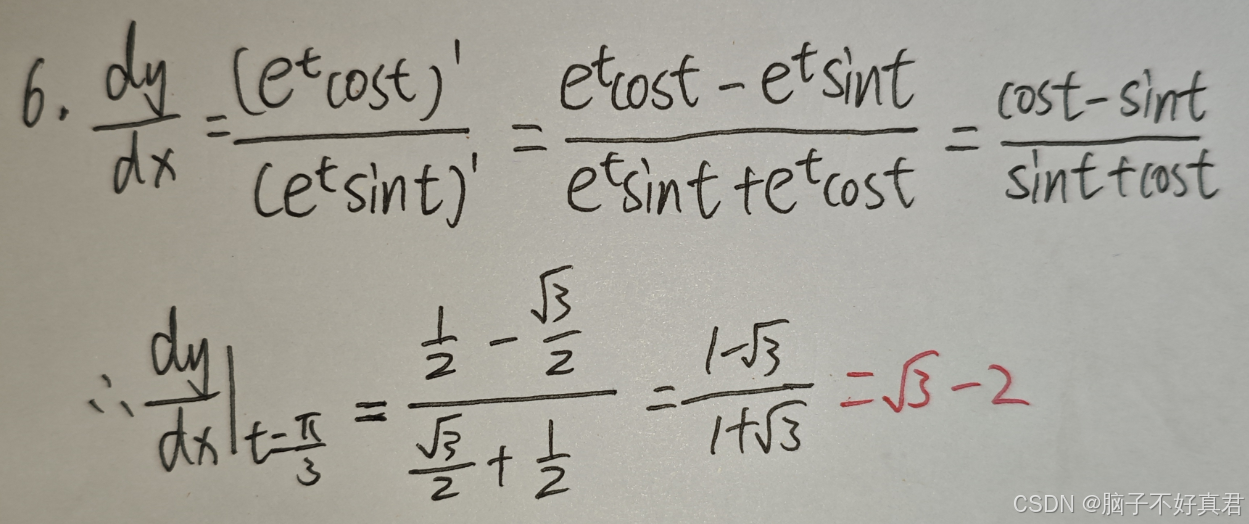 6. dy/dx = (e^t cost)'/(e^t sint)' = (e^t cost - e^t sint)/(e^t sint + e^t cost) = (cost - sint)/(sint + cost)
∴ dy/dx|t=π/3 = (1/2 - √3/2)/(√3/2 + 1/2) = (1-√3)/(1+√3) = √3 - 2
CSDN @脑子不好真君